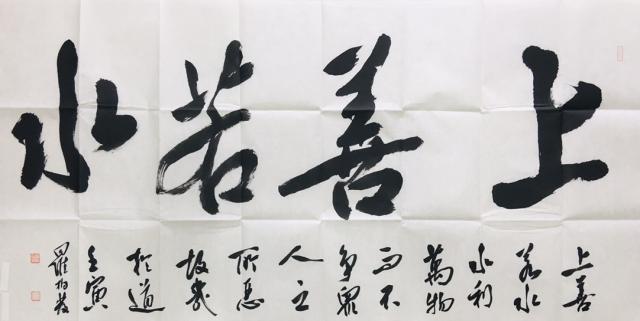 上善若水
上善
若水
水利
萬物
而不
爭眾
人之
所惡
故幾
於道
壬寅
羅